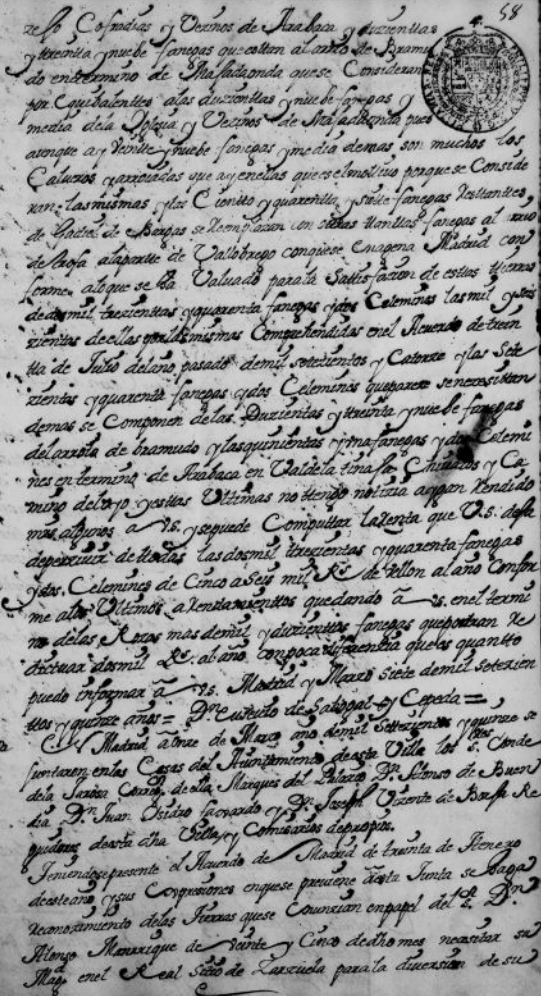 58
Cofradias y Vezinos de Arabaca y duzienttas
y ttreinta y nuebe fanegas que esttan al arroio de Bramu
do en termino de Maxadaonda que se Consideran
por Equibalenttes a las duzienttas y nuebe fanegas y
media de la Iglesia y Vezinos de Maxadaonda pues
aunque ay Veintte y nuebe fanegas y media demas son muchos los
Calueros y arroiadas que ay en ellas que es el motiuo porque se Conside
ran las mismas y los Cientto y quarentta y siette fanegas resttanttes
de Gabriel de Bargas se Reemplazan con otras ttanttas fanegas al arroio
de Trofa a la partte de Valdobrego con que se enagena Madrid con
forme a lo que se ha Valuado para la Sattisfazion de esttas ttierras
de dos mil trezienttas y quarenta fanegas y dos Celemines las mil y seis
zientas de ellas por las mismas Comprehendidas en el Acuerdo de trein
tta de Julio del año pasado de mil setezientos y Catorze y las Sete
zientas y quarenta fanegas y dos Celemines que pareze se nezesittan
demas se Componen de las Duzientas y ttreinta y nuebe fanegas
del arroio de bramudo y las quinientas y una fanegas y dos Celemi
nes en termino de Arabaca en Valdelatinaja Chinatos y Ca
mino del y esttas Ulttimas no ttengo notizia ayan Rendido
mrs. algunos a Vs. y se puede Computtar la Renta que V.s. dexa
de perziuir de ttodas las dos mil trezientas y quarenta fanegas
y dos Celemines de Cinco a Seis mil Rs. de Vellon al año Confor
me a los Ulttimos arrendamienttos quedando a Vs. en el termi
no de las Rozas mas de mil y duzienttos fanegas que podran Re
dictuar dos mil Rs. al año con poca diferencia que es quantto
puedo informar a Vs. Madrid y Marzo Siete de mil setezien
ttos y quinze años = Dn. Eusebio de Sabugal y Cepeda =
En Madrid a onze de Marzo año de mil Settezientos y quinze se
juntaron en las Casas del Ayuntamiento de esta Villa los Sres. Conde
de la Jarosa Corregr. de ella Marques del Palacio Dn. Alonso de Buen
dia Dn. Juan Isidro faxardo y Dn. Joseph Vizente de Borja Re
gidores de esta dha Villa y Comisarios de propios.
Teniendose presente el Acuerdo de Madrid de treinta de Henero
de este año y sus Expresiones en que se preuiene a esta Junta se haga
Reconozimiento de las Tierras que se enunzian en papel del Sr. Dn.
Alonso Manrrique de Veinte y Cinco de dho mes nezesitar su
Magd. en el Real Sitio de Zarzuela para la diuersion de su